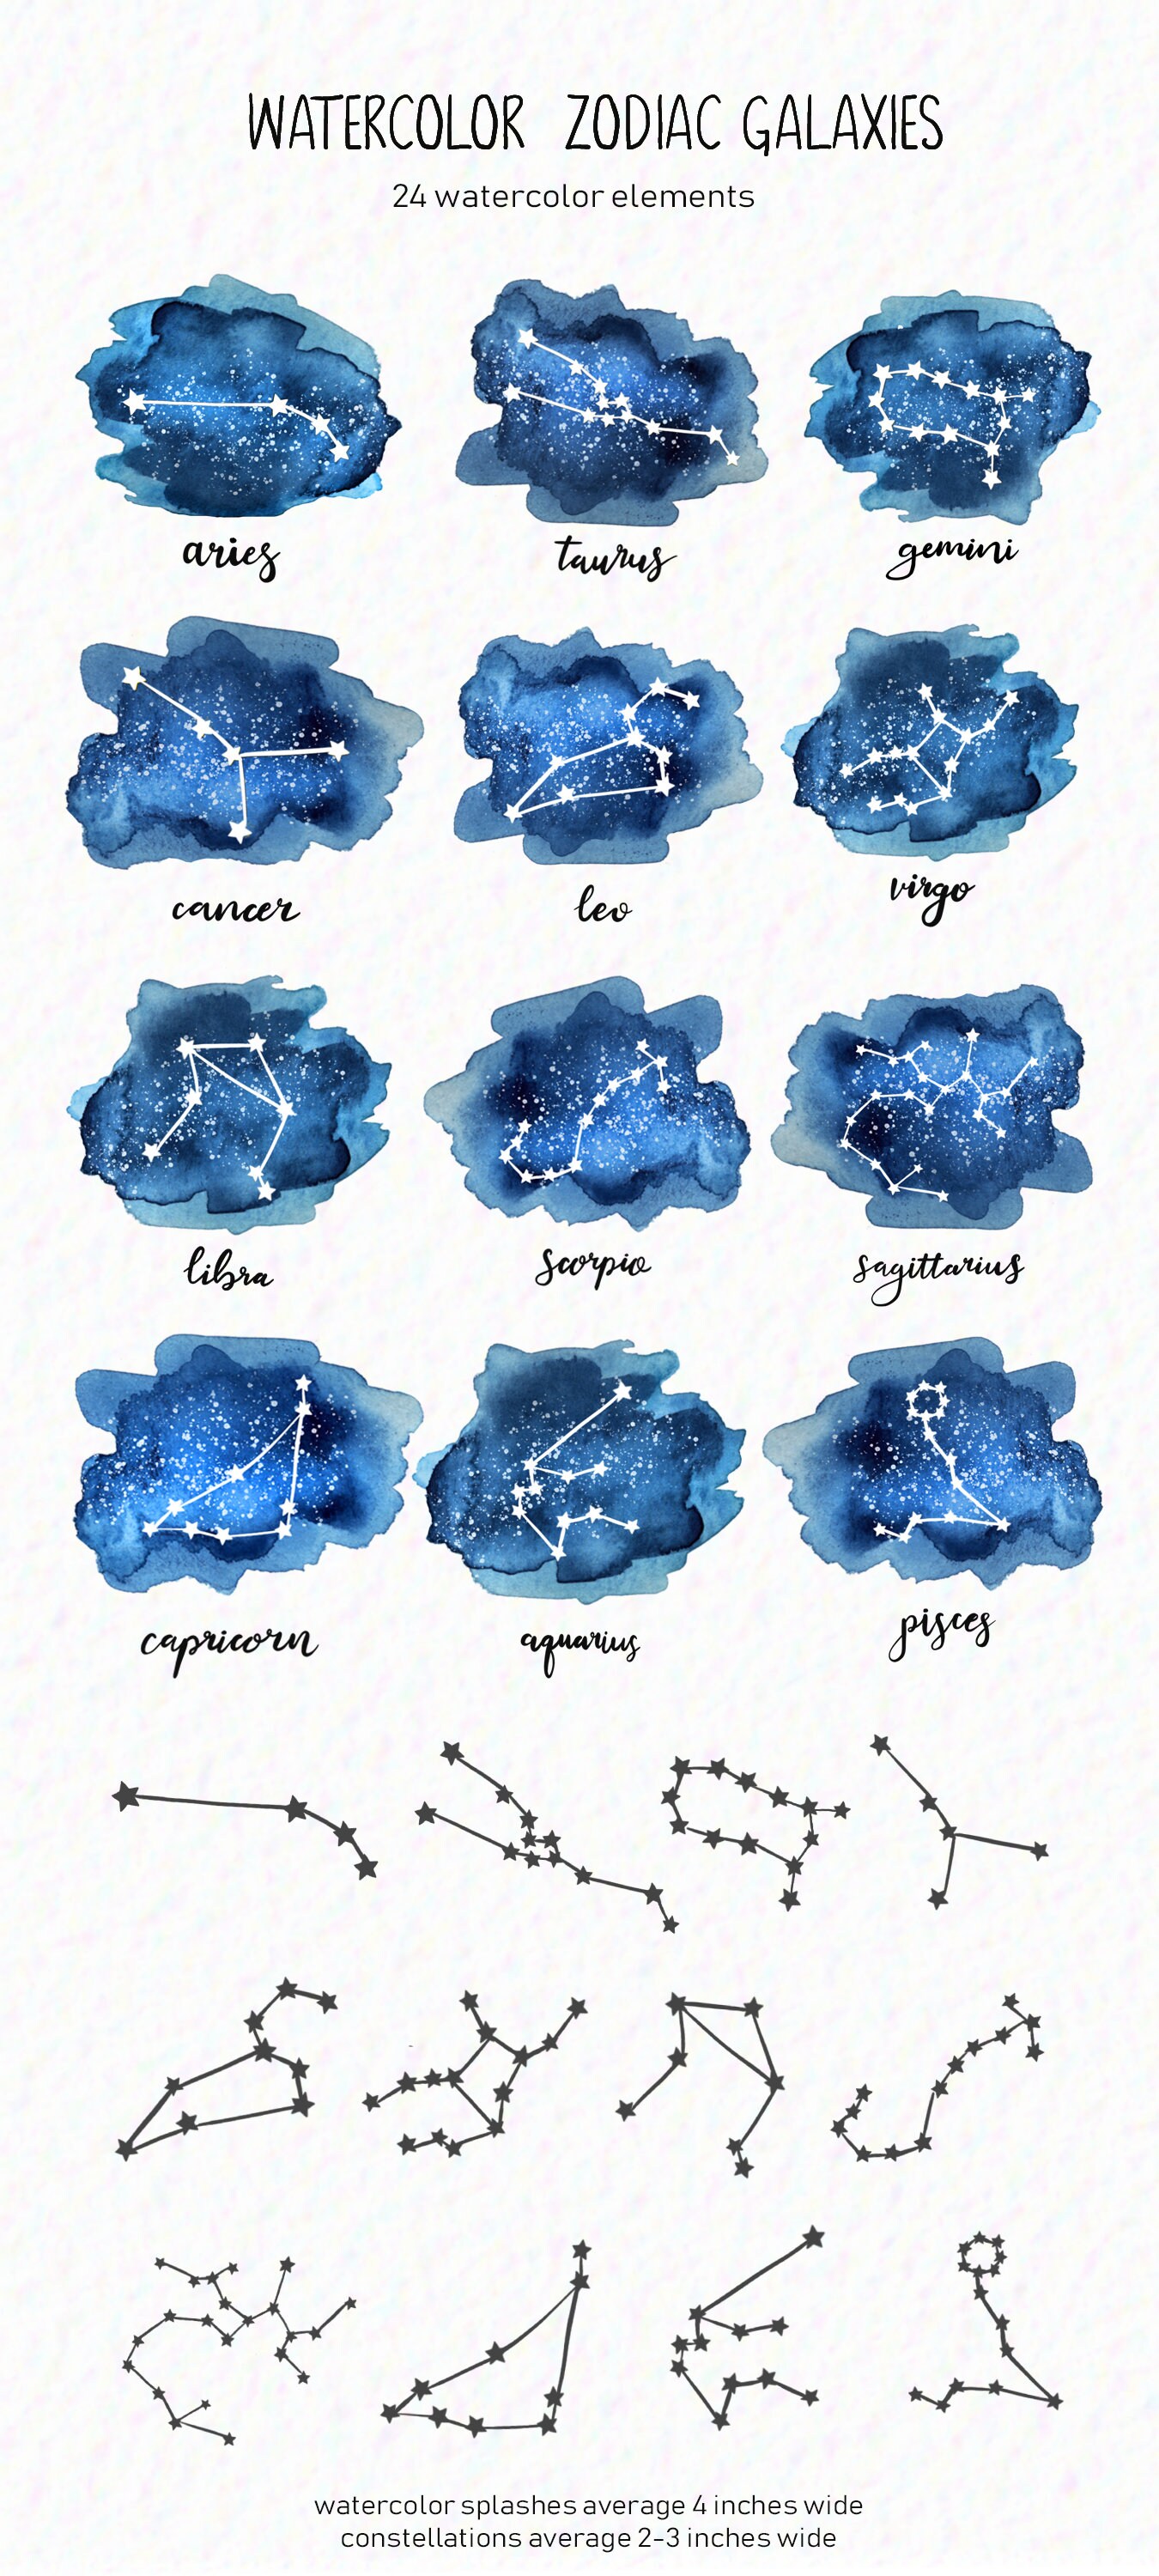 WATERCOLOR ZODIAC GALAXIES
24 watercolor elements
aries taurus gemini
cancer leo virgo
libra scorpio sagittarius
capricorn aquarius pisces
watercolor splashes average 4 inches wide
constellations average 2-3 inches wide